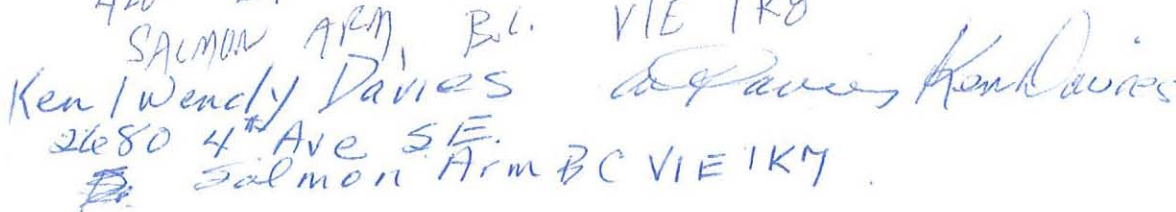 SALMON ARM, B.C. V1E 1K8
Ken / Wendy Davies Ken Davies
2680 4th Ave SE.
Salmon Arm BC V1E 1K7